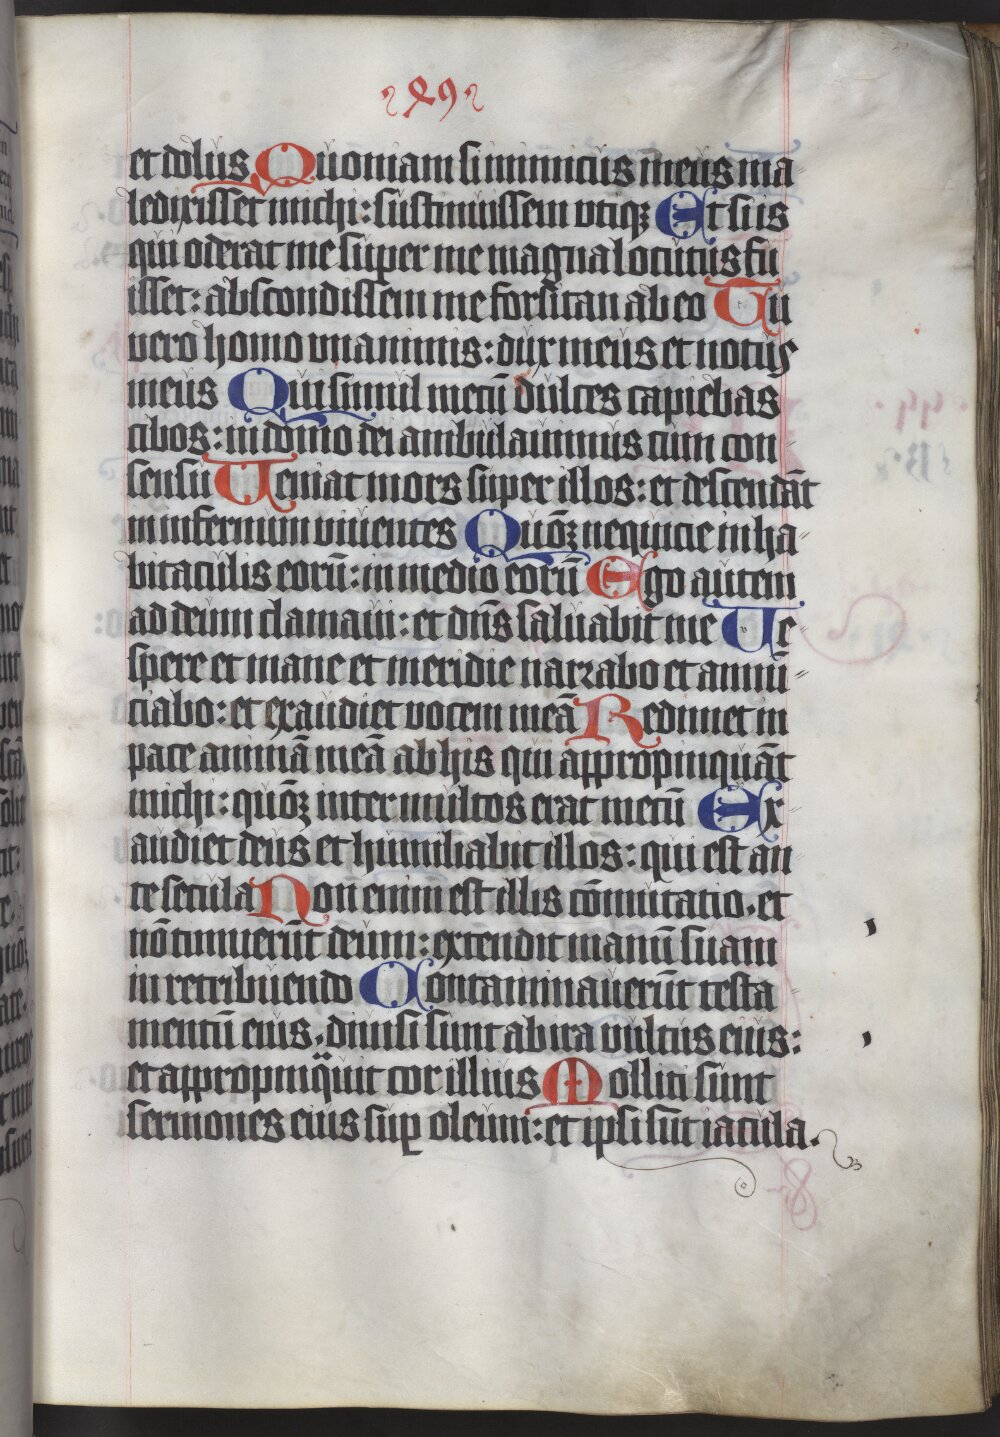 et dolus Quoniam si inimicus meus ma
ledixisset michi: sustinuissem vtiqꝫ Et si is
qui oderat me super me magna locutus fu
isset: abscondissem me forsitan ab eo Tu
vero homo vnanimis: dux meus et notus
meus Qui simul mecū dulces capiebas
cibos: in domo dei ambulauimus cum con
sensu Ueniat mors super illos: et descendāt
in infernum viuentes Quōꝫ nequicie in ha
bitaculis eorū: in medio eorū Ego autem
ad deum clamaui: et dn̄s saluabit me Ue
spere et mane et meridie narrabo et annū
ciabo: et exaudiet vocem meā Redimet in
pace animā meā ab his qui appropinquāt
michi: quōꝫ inter multos erat mecū Ex
audiet deus et humiliabit illos: qui est an
te secula Non enim est illis cōmutatio. et
nō timuerūt deum: extendit manū suam
in retribuendo Contaminauerūt testa
mentū eius. diuisi sunt ab ira vultus eius:
et appropinquit cor illius Molliti sunt
sermones eius suꝑ oleum: et ipsi sūt iacula.